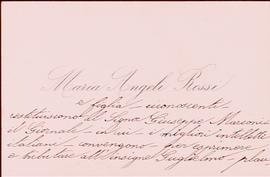 Maria Angeli Rossi
e figlia - riconoscenti -
restituiscono al Signor Giuseppe Marconi
il Giornale - in cui i migliori intelletti
italiani convengono per esprimere
e tributare all'insigne Guglielmo - plau-